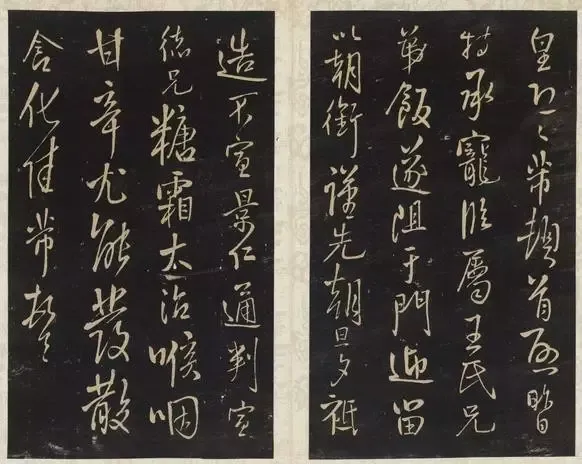 皇恐々芾頓首啟昨日
特承寵臨屬王氏兄
弟飯遂阻于門迎留
以朝銜謹先朝旦夕祗
造不宣景仁通判宣
德兄糖霜太治喉咽
甘辛尤能發散
含化佳芾